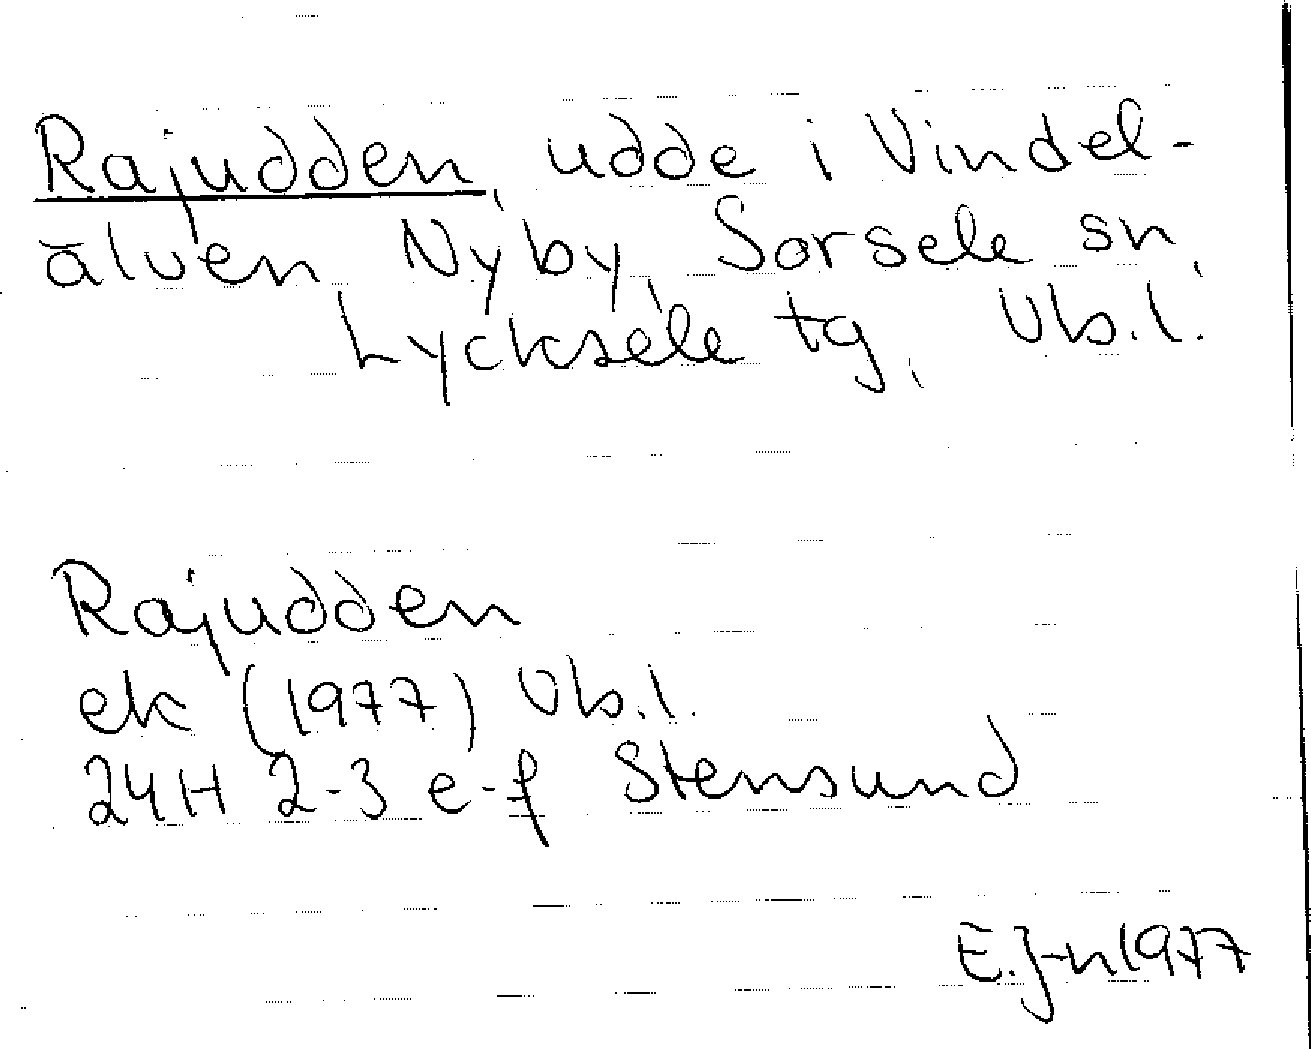 Rajudden, udde i Vindel-
älven Nyby, Sorsele sn,
Lycksele tg, Vb.l.
Rajudden
ek (1977) Vb.l.
24H 2-3 e-f Stensund
E.J-n 1977